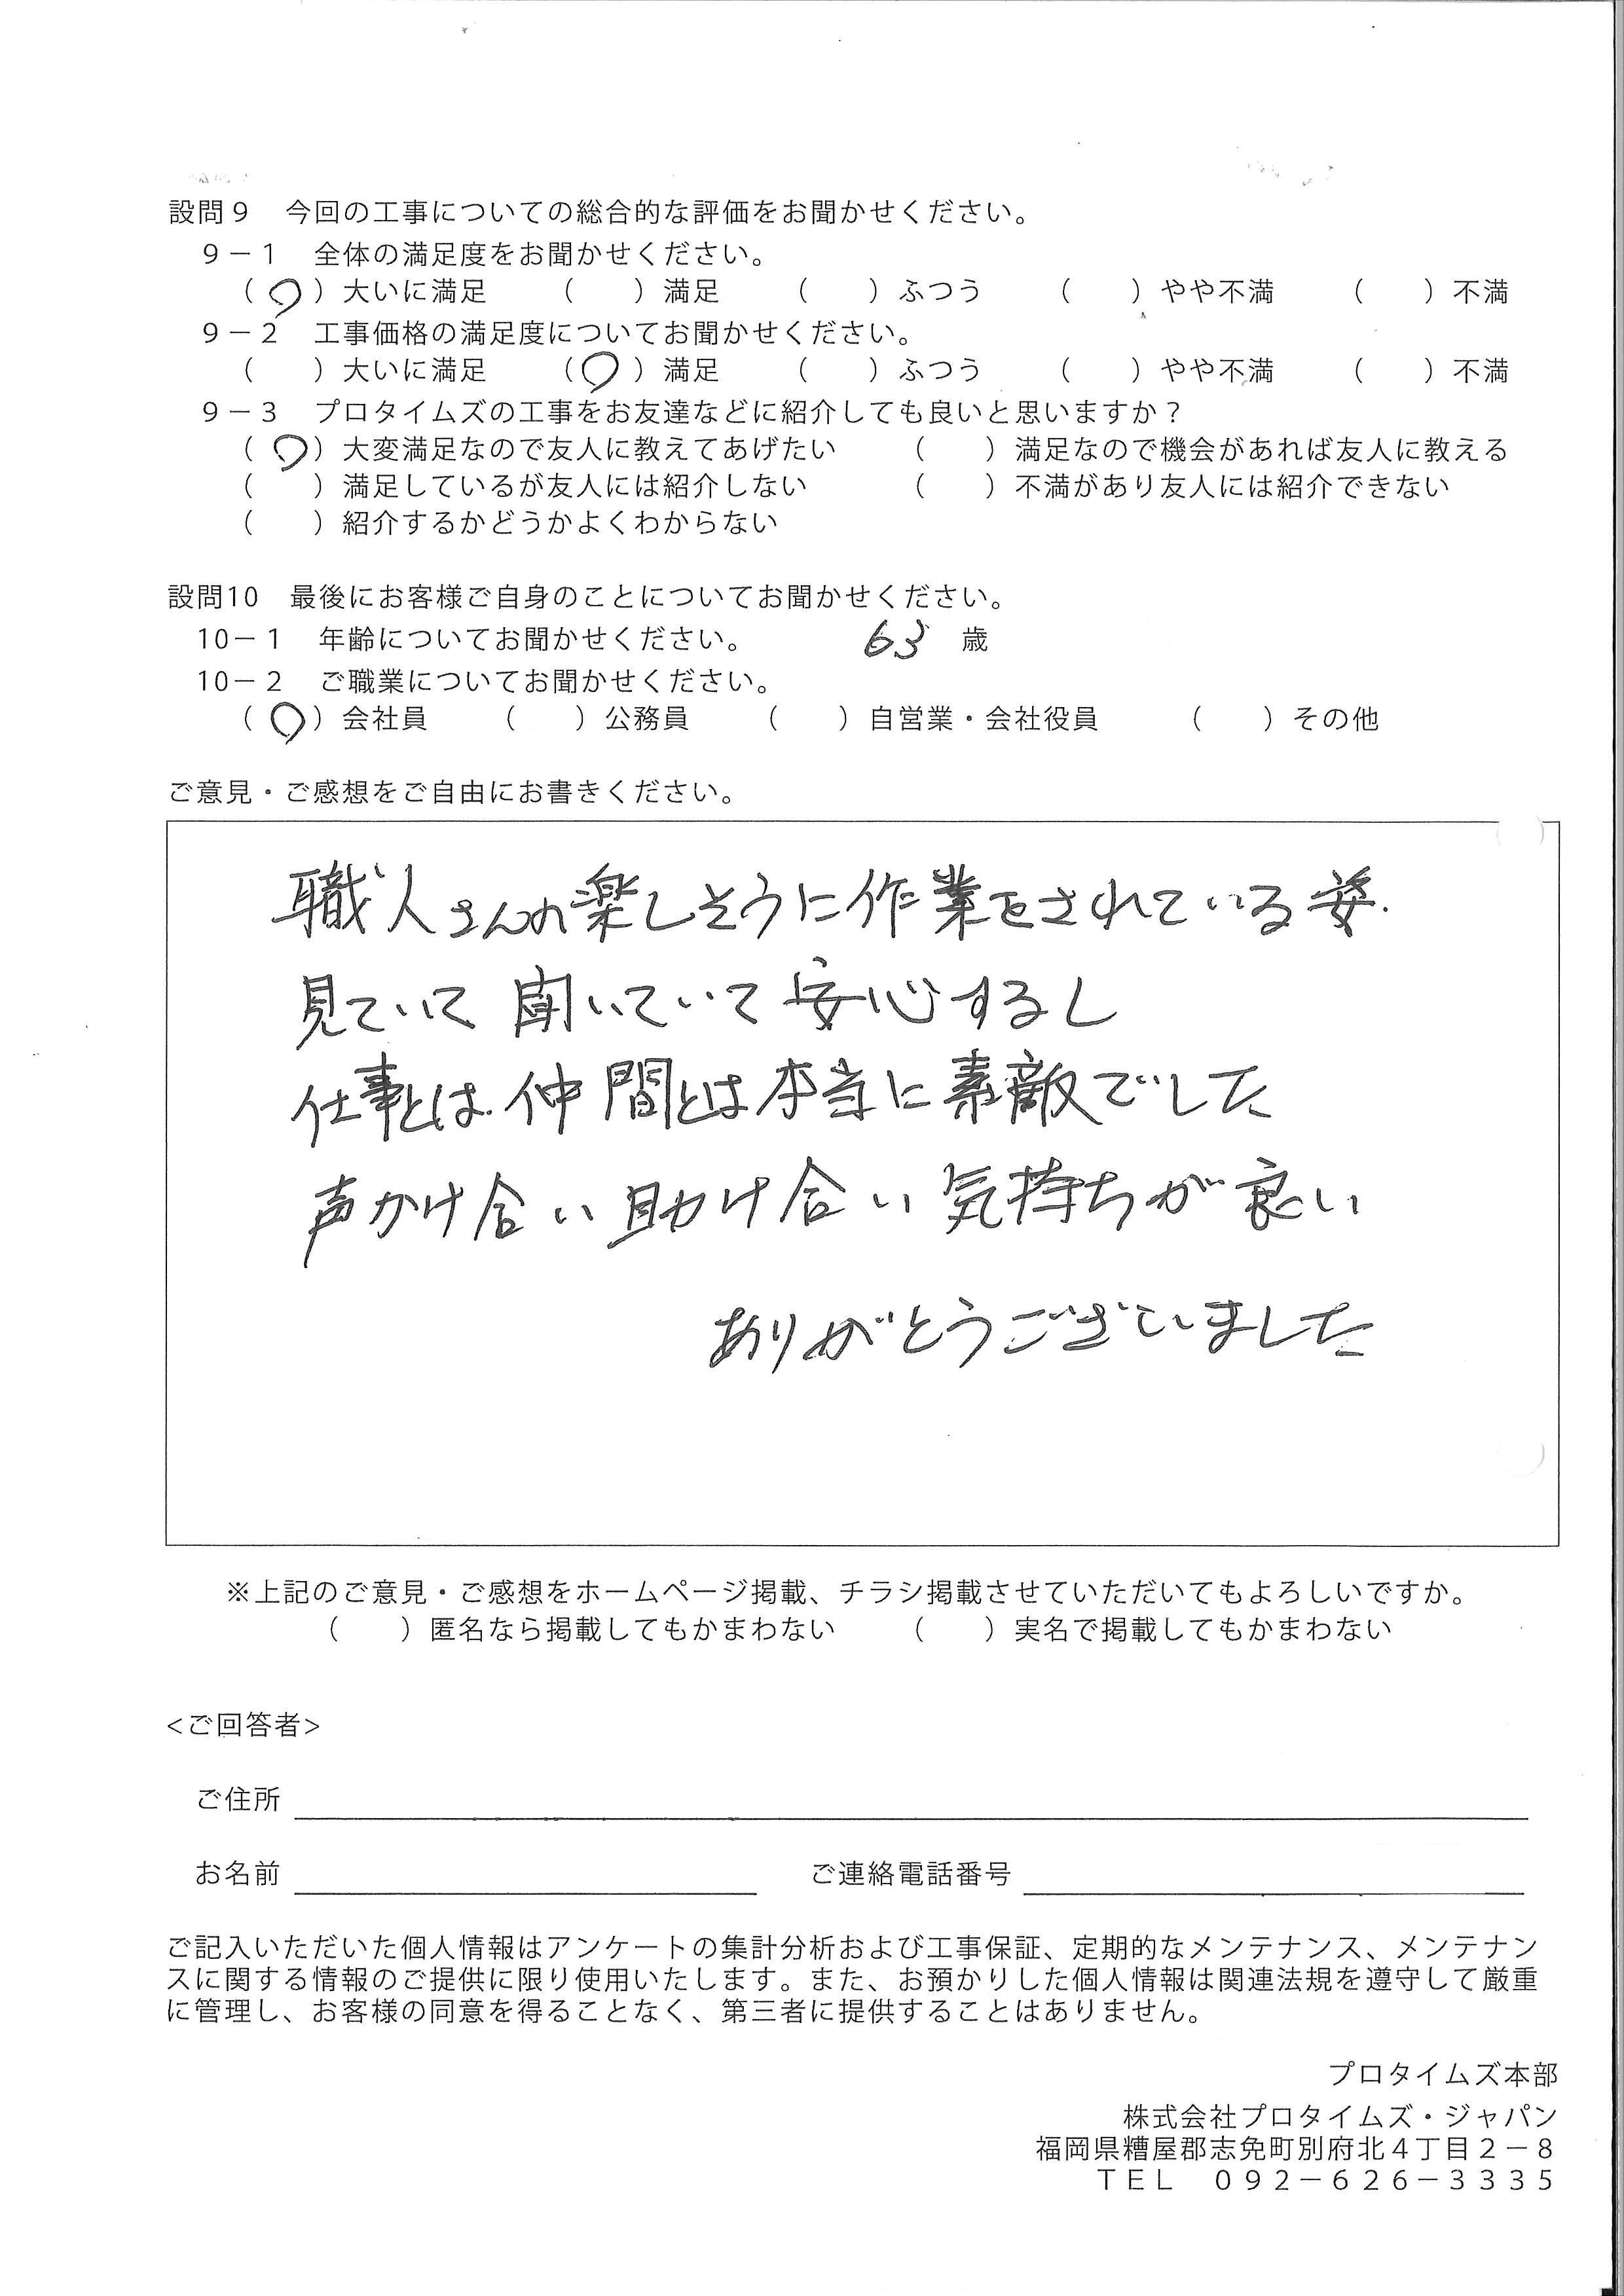 設問９　今回の工事についての総合的な評価をお聞かせください。
９－１　全体の満足度をお聞かせください。
（○）大いに満足　（　）満足　（　）ふつう　（　）やや不満　（　）不満
９－２　工事価格の満足度についてお聞かせください。
（　）大いに満足　（○）満足　（　）ふつう　（　）やや不満　（　）不満
９－３　プロタイムズの工事をお友達などに紹介しても良いと思いますか？
（○）大変満足なので友人に教えてあげたい　（　）満足なので機会があれば友人に教える
（　）満足しているが友人には紹介しない　（　）不満があり友人には紹介できない
（　）紹介するかどうかよくわからない
設問10　最後にお客様ご自身のことについてお聞かせください。
10－１　年齢についてお聞かせください。　63　歳
10－２　ご職業についてお聞かせください。
（○）会社員　（　）公務員　（　）自営業・会社役員　（　）その他
ご意見・ご感想をご自由にお書きください。
職人さんの楽しそうに作業をされている姿.
見ていて 聞いていて安心するし
仕事とは.仲間とは本当に素敵でした
声かけ合い助け合い気持ちが良い
ありがとうございました
※上記のご意見・ご感想をホームページ掲載、チラシ掲載させていただいてもよろしいですか。
（　）匿名なら掲載してもかまわない　（　）実名で掲載してもかまわない
<ご回答者>
ご住所
お名前　ご連絡電話番号
ご記入いただいた個人情報はアンケートの集計分析および工事保証、定期的なメンテナンス、メンテナン
スに関する情報のご提供に限り使用いたします。また、お預かりした個人情報は関連法規を遵守して厳重
に管理し、お客様の同意を得ることなく、第三者に提供することはありません。
プロタイムズ本部
株式会社プロタイムズ・ジャパン
福岡県糟屋郡志免町別府北４丁目２－８
ＴＥＬ　０９２－６２６－３３３５